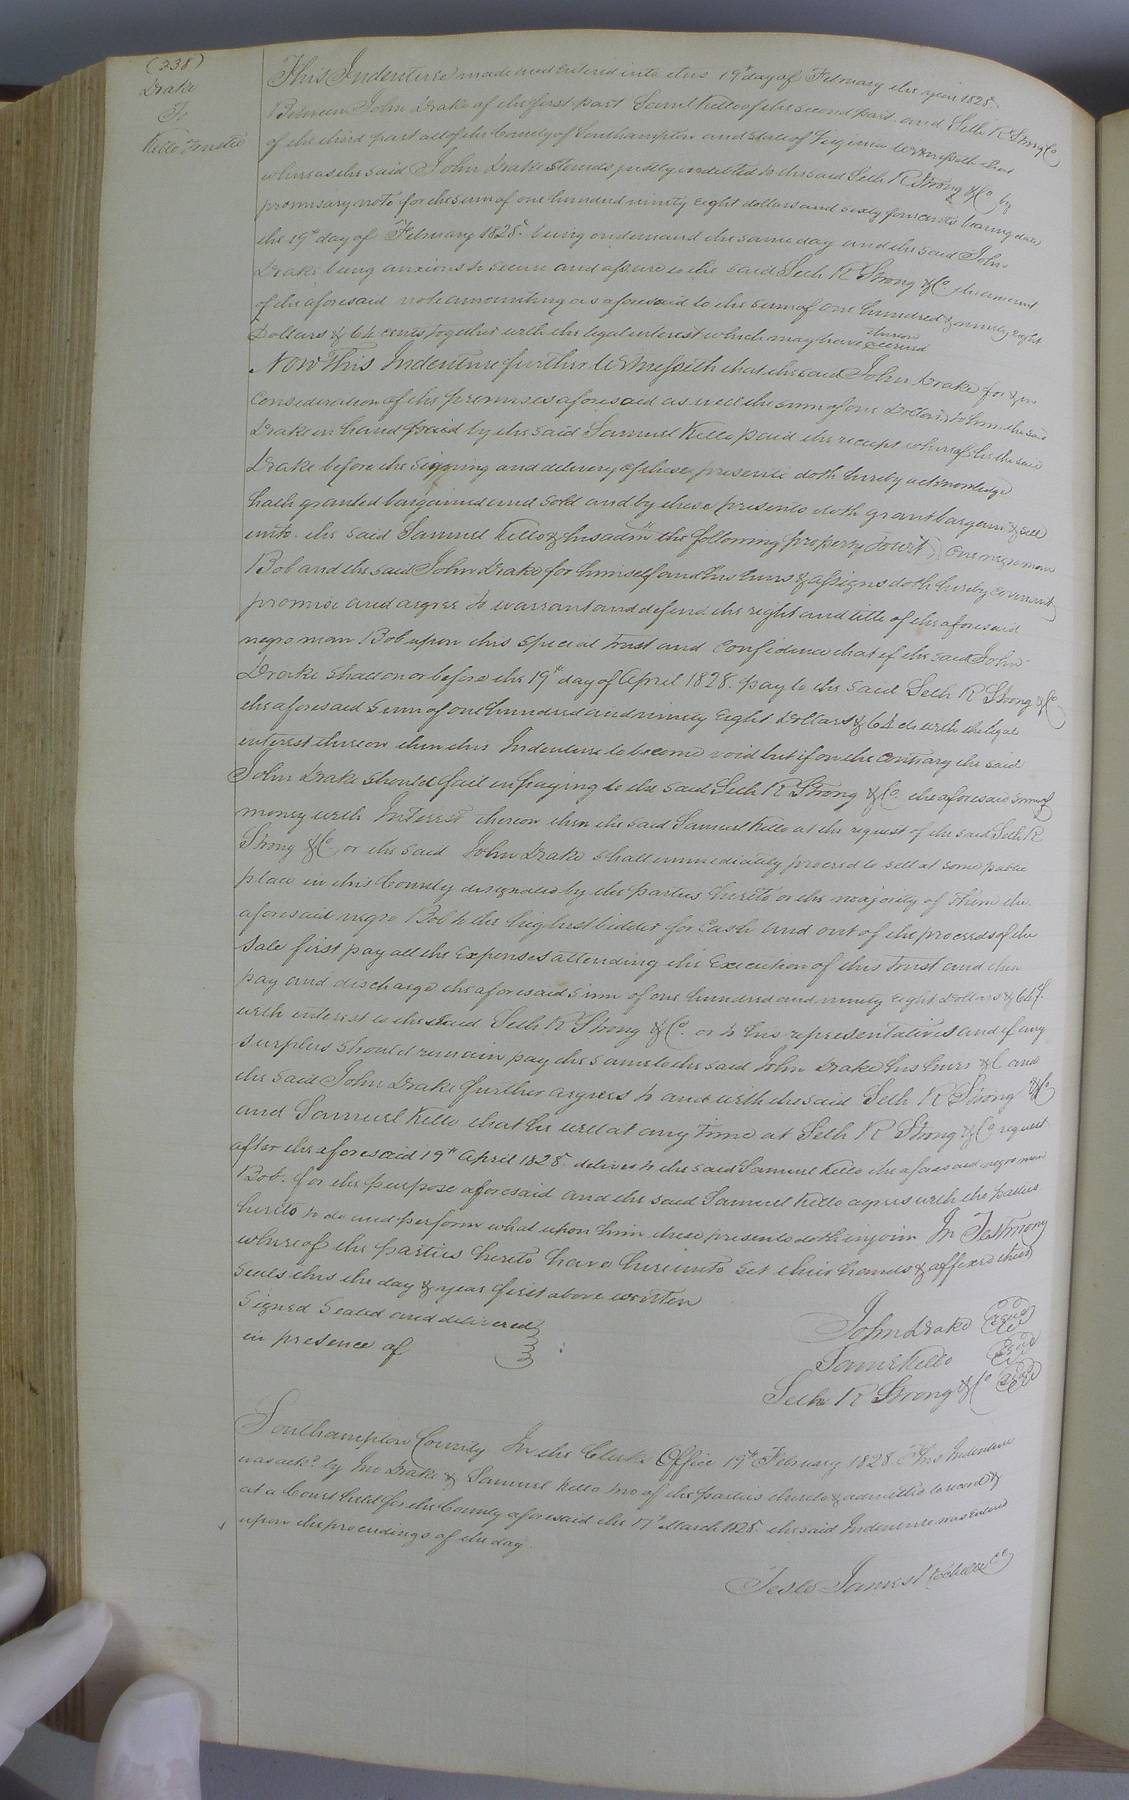 (338)
Drake
To
Kello Trustee
This Indenture made and entered into this 19th day of February the year 1828.
Between John Drake of the first part Saml Kello of the second part and Seth R Strong & Co
of the third part all of the County of Southampton and state of Virginia Witnesseth that
whereas the said John Drake stands justly indebted to the said Seth R Strong & Co. by
promisary note for the sum of one hundred ninety eight dollars and sixty four cents bearing date
the 19th day of February 1828. being on demand the same day and the said John
Drake being anxious to secure and assure to the said Seth R Strong & Co. the amount
of the aforesaid note amounting as aforesaid to the sum of one hundred & ninety eight
Dollars & 64 cents together with the legal interest which may have thereon accrued
Now This Indenture further Witnesseth that the said John Drake for & in
consideration of the premises aforesaid as well the sum of one Dollar to him the said
Drake in hand paid by the said Samuel Kello paid the receipt whereof he the said
Drake before the signing and delivery of these presents doth hereby acknowledge
hath granted bargained and sold and by these presents doth grant bargain & sell
unto the said Samuel Kello & his admrs the following property towit; one negro man
Bob and the said John Drake for himself and his heirs & assigns doth hereby covenant
promise and argree to warrant and defend the right and title of the aforesaid
negro man Bob upon this special trust and confidence that if the said John
Drake shall on or before the 19th day of April 1828. pay to the said Seth R Strong & Co
the aforesaid sum of one hundred and ninety eight Dollars & 64 cts with the legal
interest thereon then this Indenture to become void but if on the contrary the said
John Drake should fail in paying to the said Seth R Strong & Co. the aforesaid sum of
money with Interest thereon then the said Samuel Kello at the request of the said Seth R
Strong & Co or the said John Drake shall immediately proceed to sell at some public
place in this County designated by the parties hereto or the majority of them the
aforesaid negro Bob to the highest bidder for Cash and out of the proceeds of the
sale first pay all the Expenses attending the Execution of this trust and then
pay and discharge the aforesaid sum of one hundred and ninety eight Dollars & 64 cts.
with interest to the said Seth R Strong & Co. or to his representatives and if any
surplus should remain pay the same to the said John Drake his heirs &C and
the said John Drake further argrees to and with the said Seth R Strong & Co
and Samuel Kello that he will at any time at Seth R Strong & Co request
after the aforesaid 19th April 1828. deliver to the said Samuel Kello the aforesaid negro man
Bob. for the purpose aforesaid and the said Samuel Kello agrees with the parties
hereto to do and perform what upon him these presents doth injoin In Testimony
whereof the parties hereto have hereunto set their hands & affixed their
seals this the day & year first above written
Signed Sealed and delivered
in presence of
John Drake Seal
Saml Kello Seal
Seth R Strong & Co Seal
Southampton County In the Clerks Office 19th February 1828. This Indenture
was ackd. by Jno Drake & Samuel Kello two of the parties thereto & admitted to record &
at a Court held for the County aforesaid the 17th March 1828. the said Indenture was entered
upon the proceedings of the day.
Teste James Rochelle CC